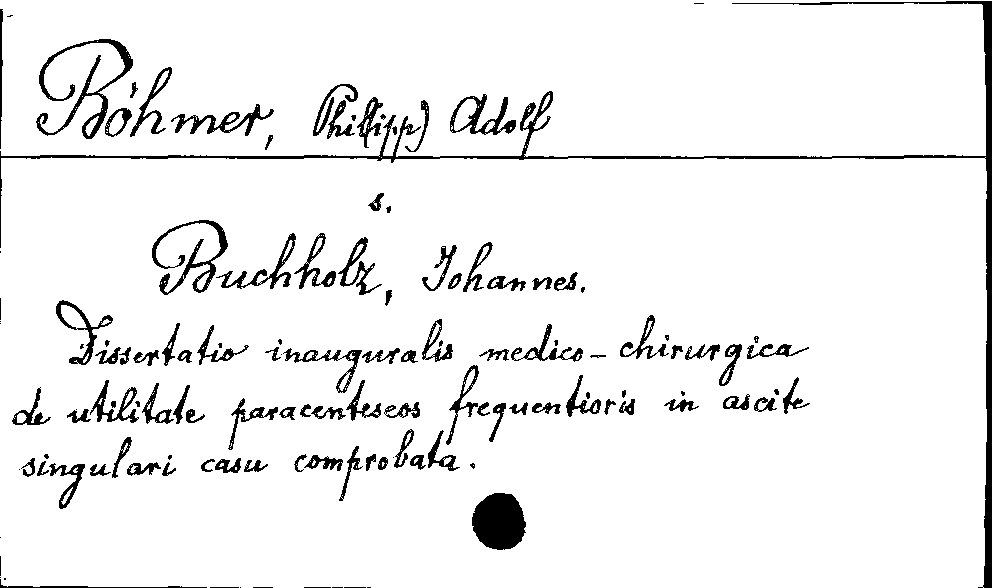 Böhmer, Phil(ipp) Adolf
s.
Buchholz, Johannes.
Dissertatio inauguralis medico-chirurgica
de utilitate paracenteseos frequentioris in ascite
singulari casu comprobata.